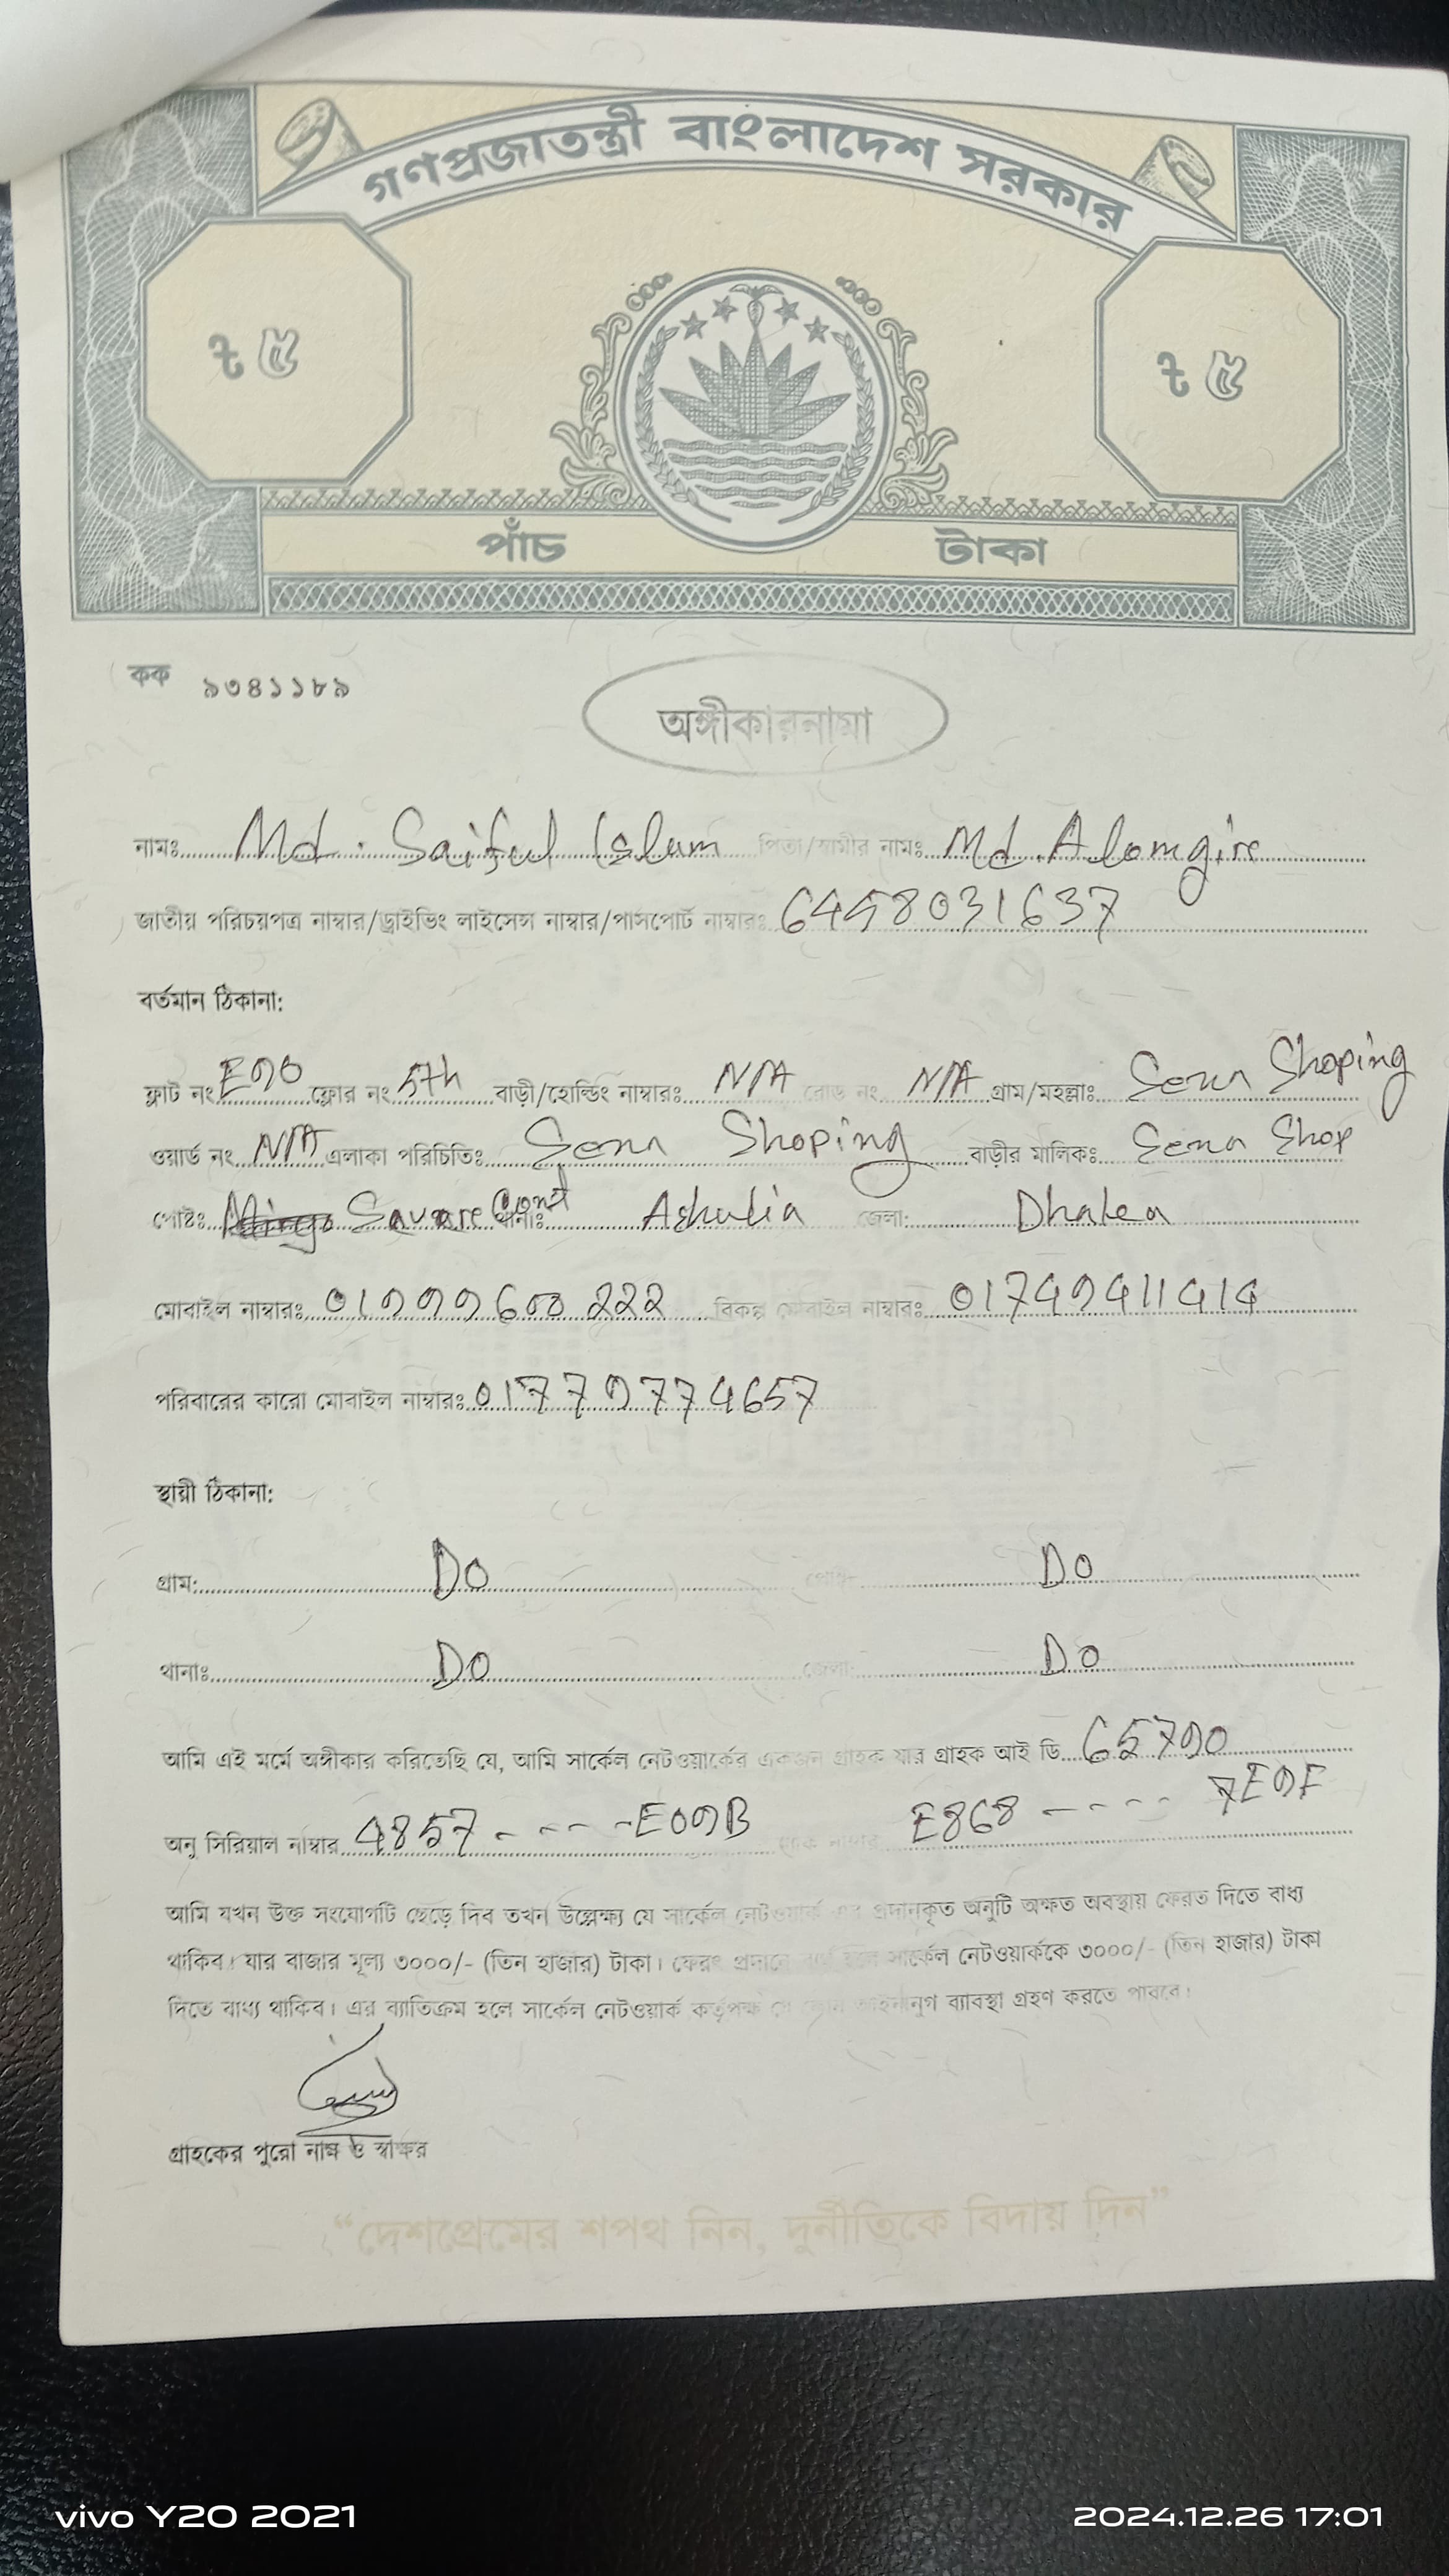 গণপ্রজাতন্ত্রী বাংলাদেশ সরকার
৳ ৫ ৳ ৫
পাঁচ টাকা
কক ৯৩৪১১৮৯
অঙ্গীকারনামা
নামঃ Md. Saiful Islam পিতা/স্বামীর নামঃ Md. Alomgire
জাতীয় পরিচয়পত্র নাম্বার/ড্রাইভিং লাইসেন্স নাম্বার/পাসপোর্ট নাম্বারঃ 6458031637
বর্তমান ঠিকানা:
ফ্লাট নং E90 ফ্লোর নং 5th বাড়ী/হোল্ডিং নাম্বারঃ N/A রোড নং N/A গ্রাম/মহল্লাঃ Sena Shoping
ওয়ার্ড নং N/A এলাকা পরিচিতিঃ Sena Shoping বাড়ীর মালিকঃ Sena Shop
পোষ্টঃ থানাঃ Ashulia জেলা: Dhaka
মোবাইল নাম্বারঃ 01999600222 বিকল্প মোবাইল নাম্বারঃ 01749411414
পরিবারের কারো মোবাইল নাম্বারঃ 01779774657
স্থায়ী ঠিকানা:
গ্রাম: DO পোষ্ট: DO
থানাঃ DO জেলা: DO
আমি এই মর্মে অঙ্গীকার করিতেছি যে, আমি সার্কেল নেটওয়ার্কের একজন গ্রাহক যার গ্রাহক আই ডি 65790
অনু সিরিয়াল নাম্বার 4857 - - - - E09B ম্যাক নাম্বার E868 - - - - 7E9F
আমি যখন উক্ত সংযোগটি ছেড়ে দিব তখন উল্লেক্ষ্য যে সার্কেল নেটওয়ার্ক এর প্রদানকৃত অনুটি অক্ষত অবস্থায় ফেরত দিতে বাধ্য
থাকিব। যার বাজার মূল্য ৩০০০/- (তিন হাজার) টাকা। ফেরৎ প্রদানে ব্যর্থ হলে সার্কেল নেটওয়ার্ককে ৩০০০/- (তিন হাজার) টাকা
দিতে বাধ্য থাকিব। এর ব্যাতিক্রম হলে সার্কেল নেটওয়ার্ক কর্তৃপক্ষ যে কোন আইনানুগ ব্যাবস্থা গ্রহণ করতে পারবে।
গ্রাহকের পুরো নাম ও স্বাক্ষর
“দেশপ্রেমের শপথ নিন, দুর্নীতিকে বিদায় দিন”
vivo Y20 2021 2024.12.26 17:01